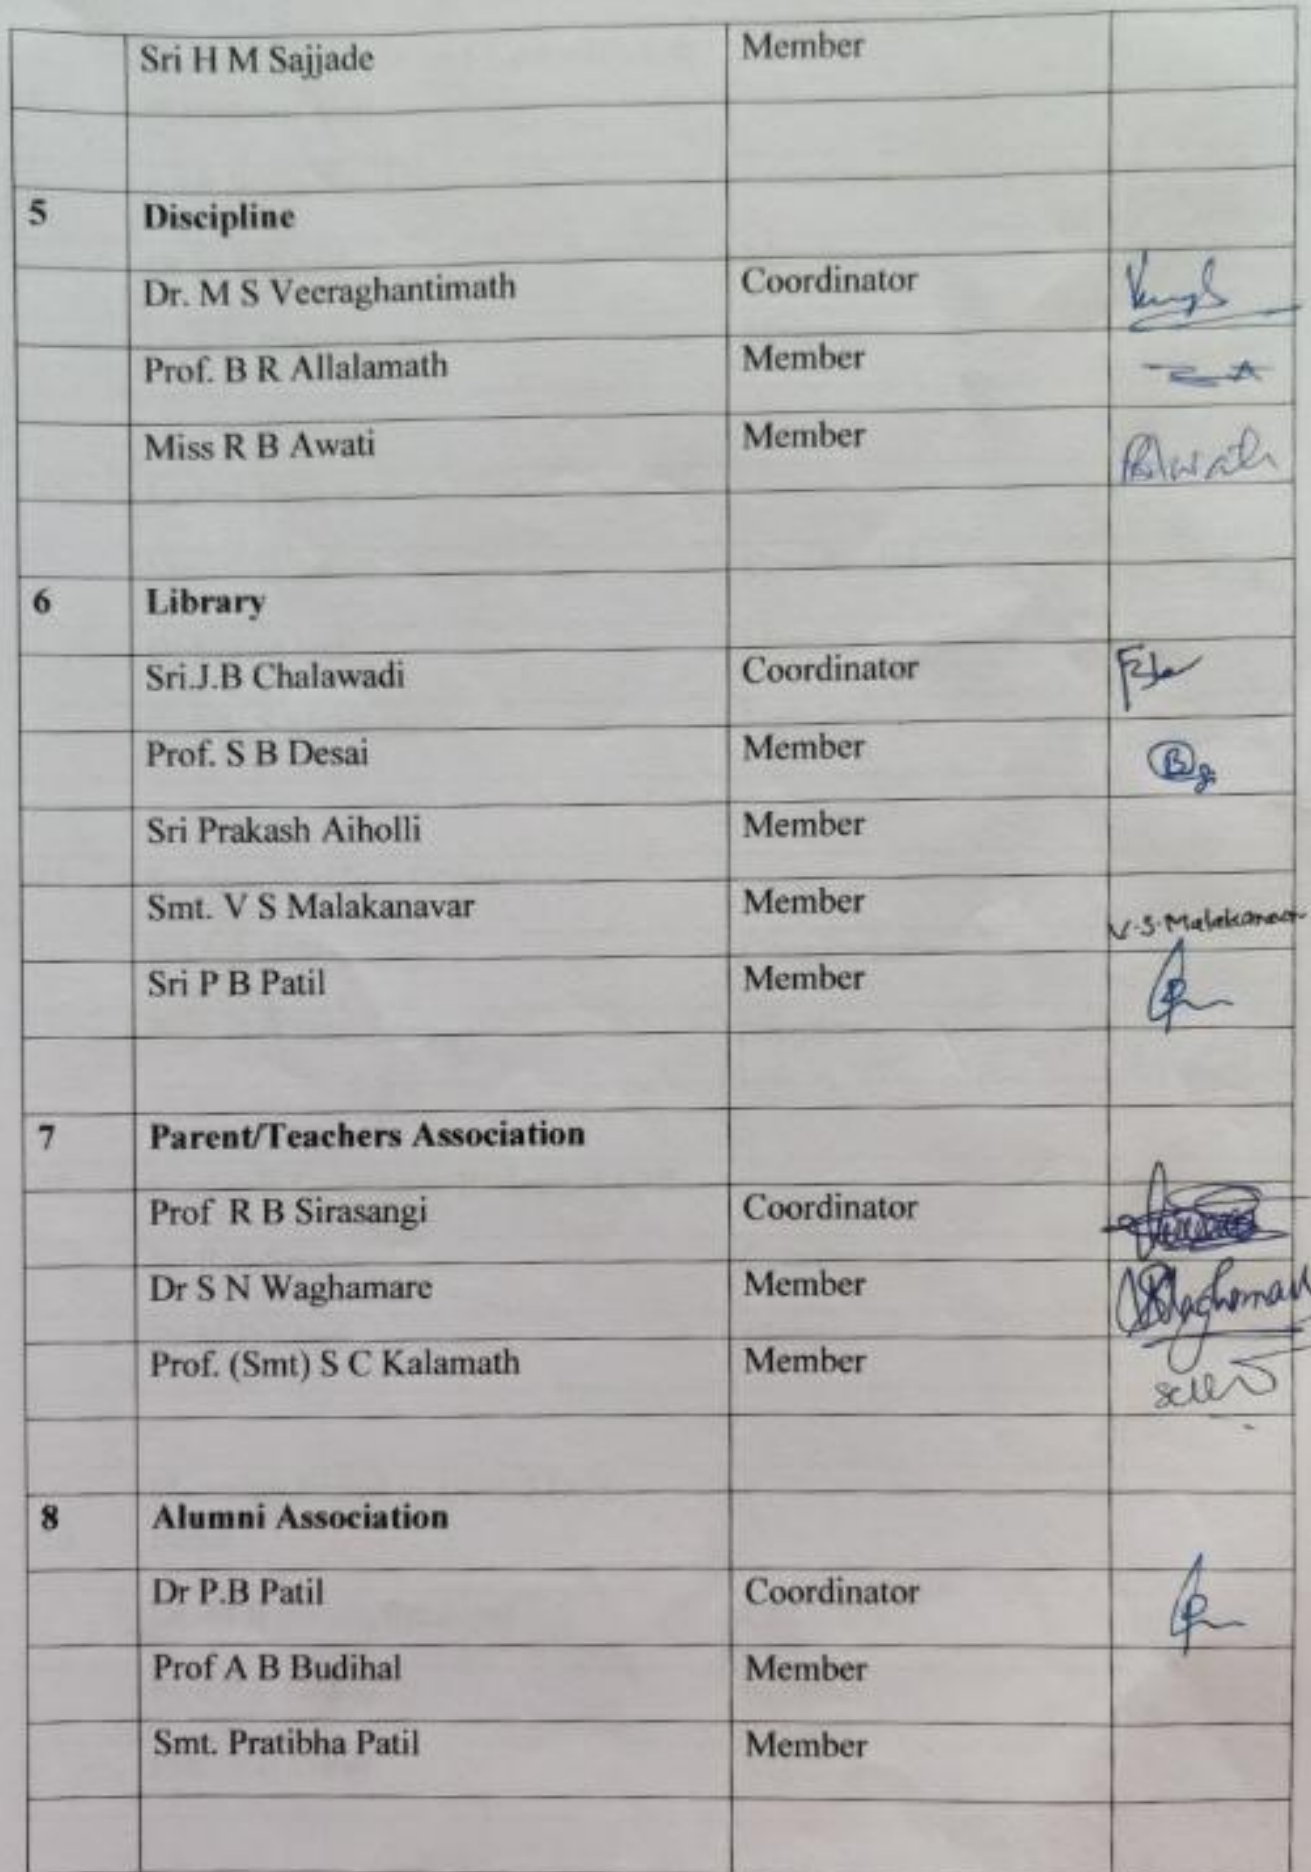 Sri H M Sajjade Member
5 Discipline
Dr. M S Veeraghantimath Coordinator
Prof. B R Allalamath Member
Miss R B Awati Member
6 Library
Sri.J.B Chalawadi Coordinator
Prof. S B Desai Member
Sri Prakash Aiholli Member
Smt. V S Malakanavar Member V.S.Malakanavar
Sri P B Patil Member
7 Parent/Teachers Association
Prof R B Sirasangi Coordinator
Dr S N Waghamare Member
Prof. (Smt) S C Kalamath Member
8 Alumni Association
Dr P.B Patil Coordinator
Prof A B Budihal Member
Smt. Pratibha Patil Member